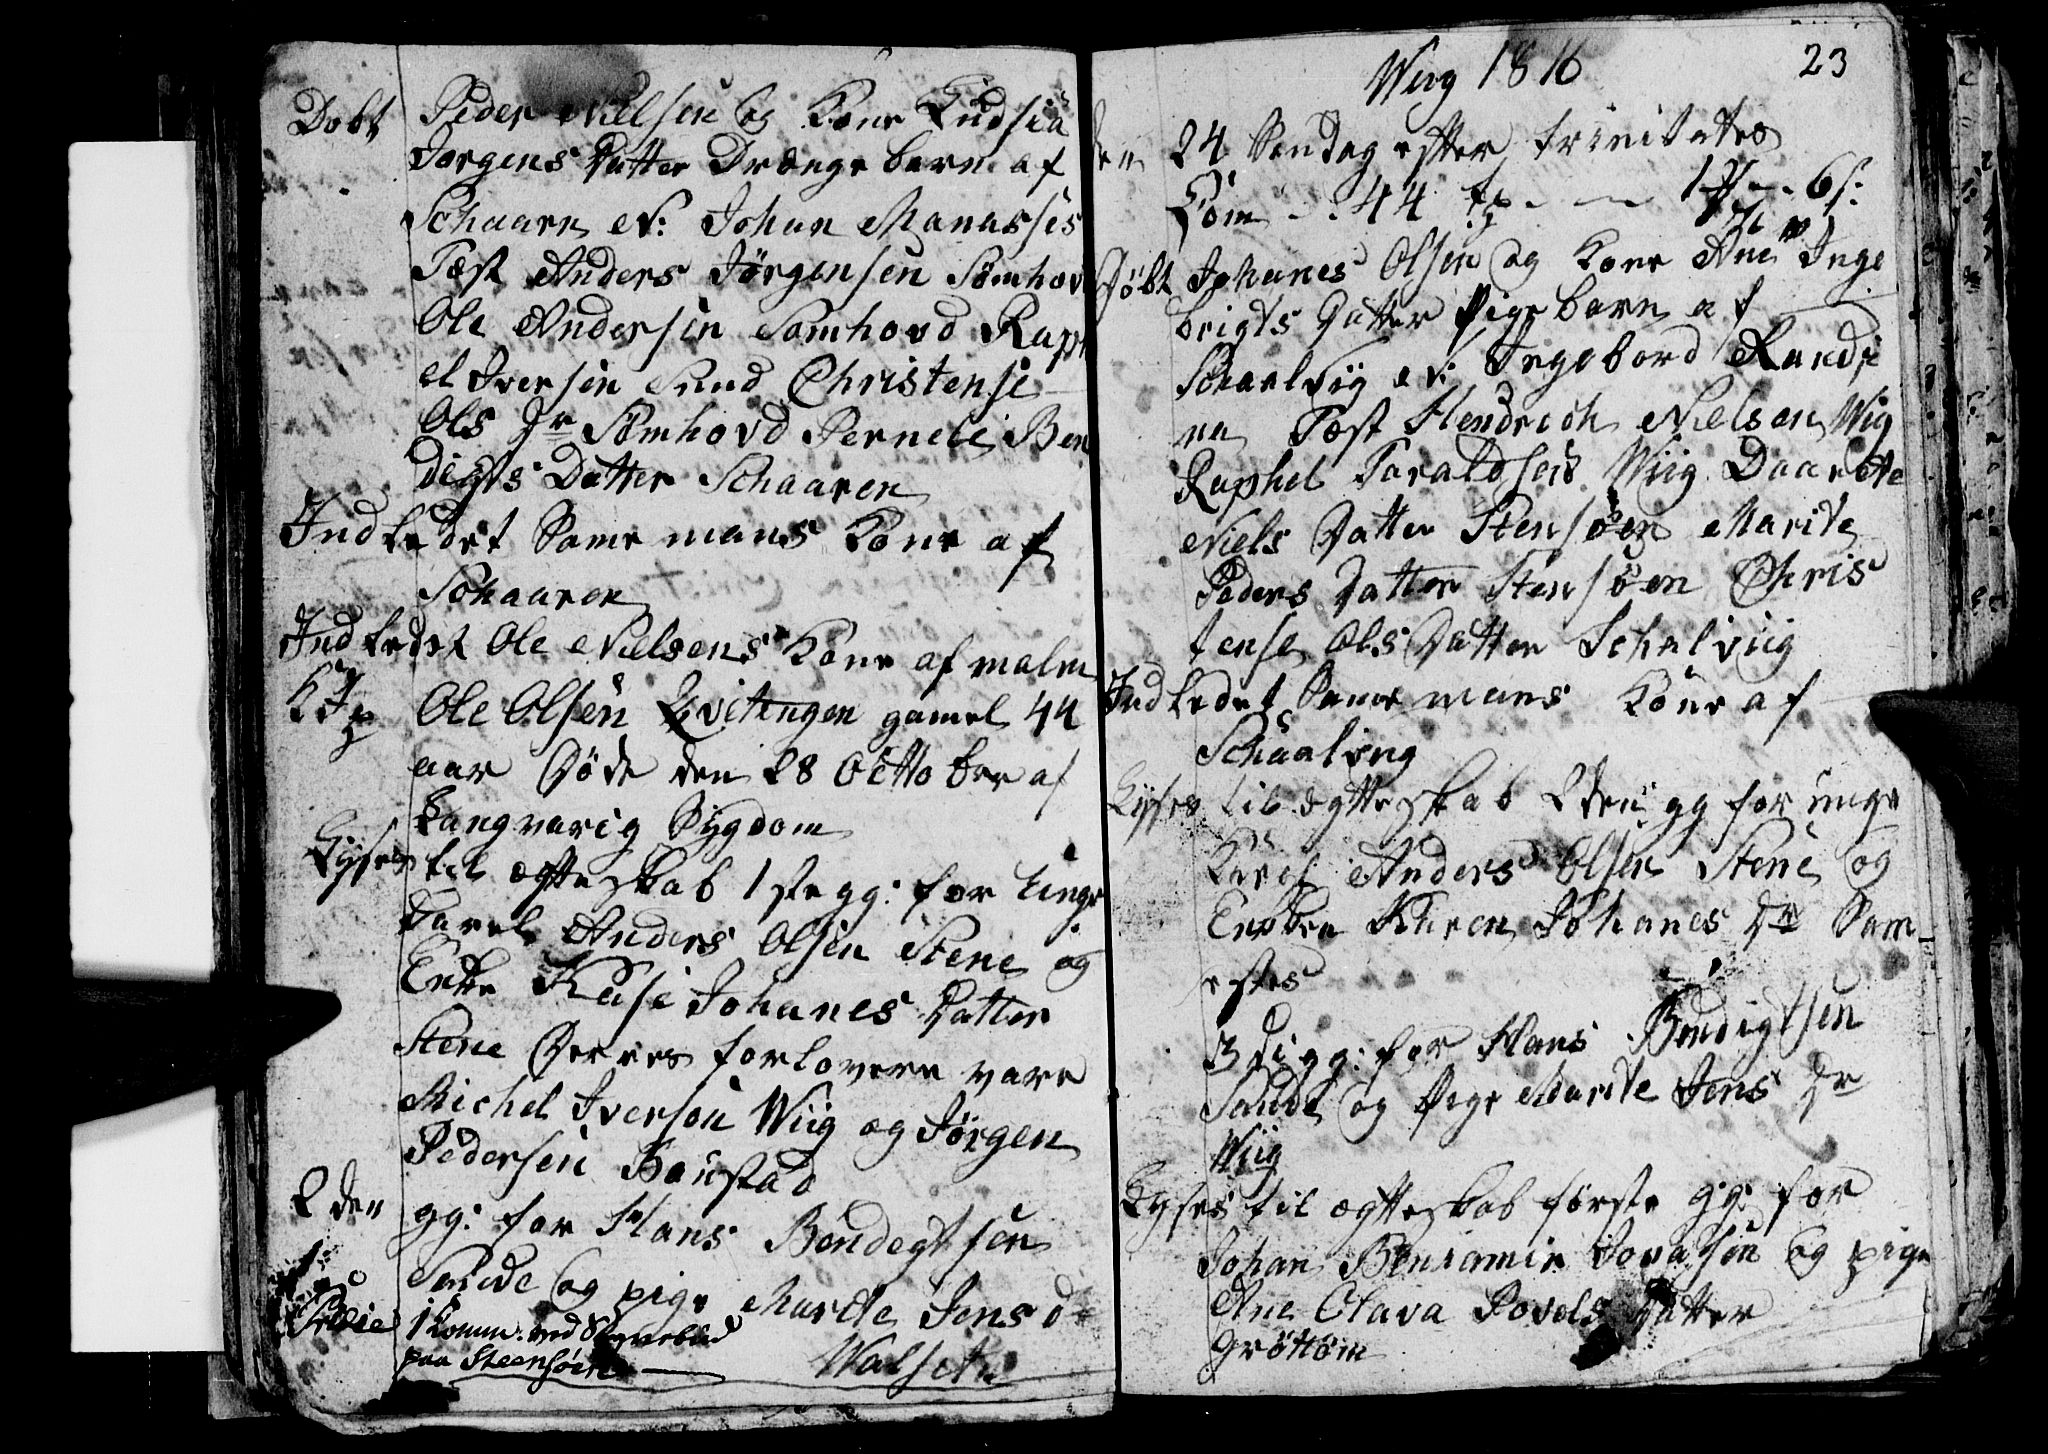 Dobt Peder Nielsen og Kone Ludsia
Jorgens Datter Drænge barn af
Schaaren N: Johan Manasses
Fæst Anders Jørgensen Sømhov
Ole Andersen Somhovd Raph
el Iversen Sund Christense
Ols Dr Sømhovd Pernele Ben
digts Datter Schaaren
Indledet Same mans Kone af
Schaaren
Indledet Ole Nielsens Kone af malm
Ole Olsen Qvitingen gamel 44
aar Døde den 28 Octtober af
Langvarig Sygdom
Lyses til ægtteskab 1ste gg: for Unge
Karel Anders Olsen Stene og
Enke Johanes Datter
Stene Derres forlovere vare
Michel Iverson Wiig og Jørgen
Pedersen Baustad
2den gg: for Hans Bendegtsen
Sande og pige Marite Jens d
Walseth
1 Komm: ved
paa Steensöen
Wiig 1816 23
Den 24 Søndag efter trinitates
Kom 44
Døbt Johanes Olsen og Kone Ane Inge
brigts Datter Pige barn af
Schaalviig N: Ingebord Randi
na Fæst Hendrich Nielsen Wiig
Raphel Taraldsen Wiig Daarete
Niels Datter Stensøen Marite
Peders Datter Stensøen Chris
tense Ols Datter Schalviig
Indledet Same mans Kone af
Schaalvig
Lyses til ægtteskab 2den gg for unge
Karel Anders Olsen Stene og
Enken Karen Johanes Dr Sam
estes
3di gg: for Hans Bendigtsen
Sande og Pige Marite Jens Dr
Wiig
Lyses til ægtteskab første gg: for
Johan Beniamin Jonasen og pige
Ane Olava Povels Datter
Grøttøm